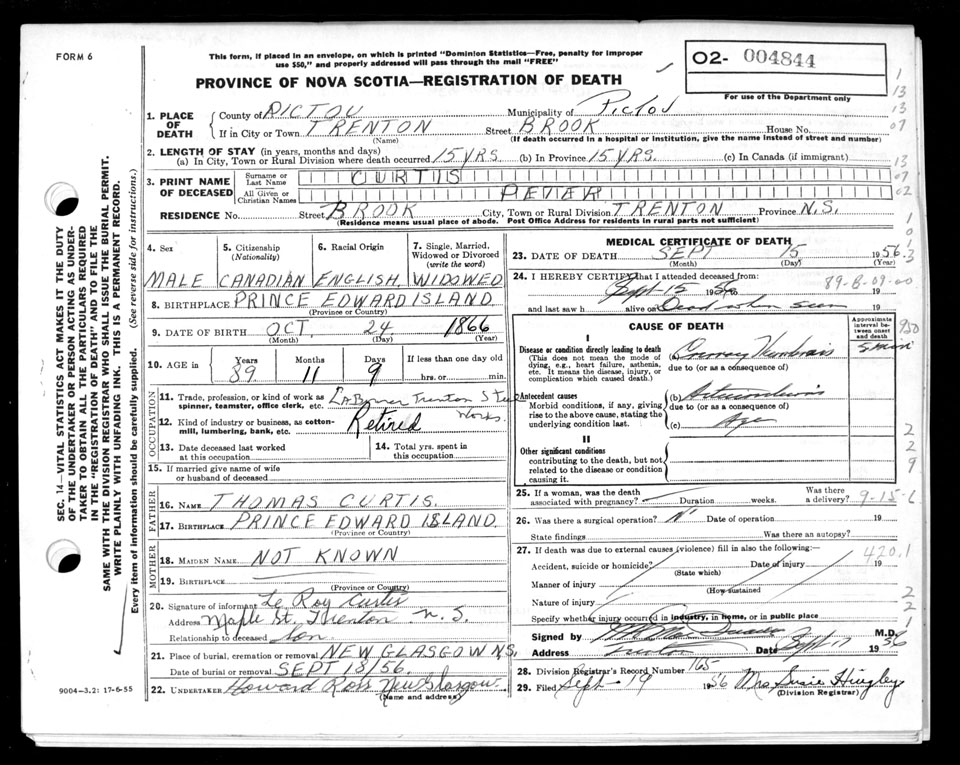 FORM 6
This form, if placed in an envelope, on which is printed "Dominion Statistics—Free, penalty for improper
use $50," and properly addressed will pass through the mail "FREE"
O2- 004844
For use of the Department only
PROVINCE OF NOVA SCOTIA—REGISTRATION OF DEATH
1. PLACE OF DEATH
County of PICTOU Municipality of Pictou
If in City or Town TRENTON Street BROOK House No.
(Name) (If death occurred in a hospital or institution, give the name instead of street and number)
2. LENGTH OF STAY (in years, months and days)
(a) In City, Town or Rural Division where death occurred 15 YRS. (b) In Province 15 YRS. (c) In Canada (if immigrant)
3. PRINT NAME OF DECEASED
Surname or Last Name CURTIS
All Given or Christian Names PETER
RESIDENCE No. Street BROOK City, Town or Rural Division TRENTON Province N.S.
(Residence means usual place of abode. Post Office Address for residents in rural parts not sufficient)
4. Sex 5. Citizenship (Nationality) 6. Racial Origin 7. Single, Married, Widowed or Divorced (write the word)
MALE CANADIAN ENGLISH. WIDOWED
8. BIRTHPLACE PRINCE EDWARD ISLAND
(Province or Country)
9. DATE OF BIRTH OCT 24 1866
(Month) (Day) (Year)
10. AGE in Years Months Days If less than one day old
89 11 9 hrs. or min.
OCCUPATION
11. Trade, profession, or kind of work as spinner, teamster, office clerk, etc. Trenton Steel
Works.
12. Kind of industry or business, as cotton-mill, lumbering, bank, etc. Retired
13. Date deceased last worked at this occupation
14. Total yrs. spent in this occupation
15. If married give name of wife or husband of deceased
FATHER
16. NAME THOMAS CURTIS.
17. BIRTHPLACE PRINCE EDWARD ISLAND.
(Province or Country)
MOTHER
18. MAIDEN NAME NOT KNOWN
19. BIRTHPLACE
(Province or Country)
20. Signature of informant Le Roy Curtis
Address Maple St. Trenton N.S.
Relationship to deceased Son
21. Place of burial, cremation or removal NEW GLASGOW N.S.
Date of burial or removal SEPT 18/56.
22. UNDERTAKER Howard Ross New Glasgow
(Name and address)
MEDICAL CERTIFICATE OF DEATH
23. DATE OF DEATH SEPT 15 1956
(Month) (Day) (Year)
24. I HEREBY CERTIFY that I attended deceased from:
Sept 15 1956
89-B-09-00
and last saw h alive on Dead when seen 19
CAUSE OF DEATH
Approximate interval between onset and death
I
Disease or condition directly leading to death
(This does not mean the mode of dying, e.g., heart failure, asthenia, etc. It means the disease, injury, or complication which caused death.)
due to (or as a consequence of)
Antecedent causes
Morbid conditions, if any, giving rise to the above cause, stating the underlying condition last.
(b)
due to (or as a consequence of)
(c) Age
II
Other significant conditions
contributing to the death, but not related to the disease or condition causing it.
25. If a woman, was the death associated with pregnancy? Duration weeks. Was there a delivery?
26. Was there a surgical operation? Date of operation 19
State findings Was there an autopsy?
27. If death was due to external causes (violence) fill in also the following: 420.1
Accident, suicide or homicide? Date of injury 19
(State which)
Manner of injury
(How sustained
Nature of injury
Specify whether injury occurred in industry, in home, or in public place
Signed by M.D.
Address Trenton Date Sept 17 1956
28. Division Registrar's Record Number 165
29. Filed Sept. 19 1956 Mrs Susie Hingley
(Division Registrar)
SEC. 14—VITAL STATISTICS ACT MAKES IT THE DUTY
OF THE UNDERTAKER OR PERSON ACTING AS UNDER-
TAKER TO OBTAIN ALL THE PARTICULARS REQUIRED
IN THE "REGISTRATION OF DEATH" AND TO FILE THE
SAME WITH THE DIVISION REGISTRAR WHO SHALL ISSUE THE BURIAL PERMIT.
WRITE PLAINLY WITH UNFADING INK. THIS IS A PERMANENT RECORD.
Every item of information should be carefully supplied. (See reverse side for instructions.)
9004-3.21 17-6-55